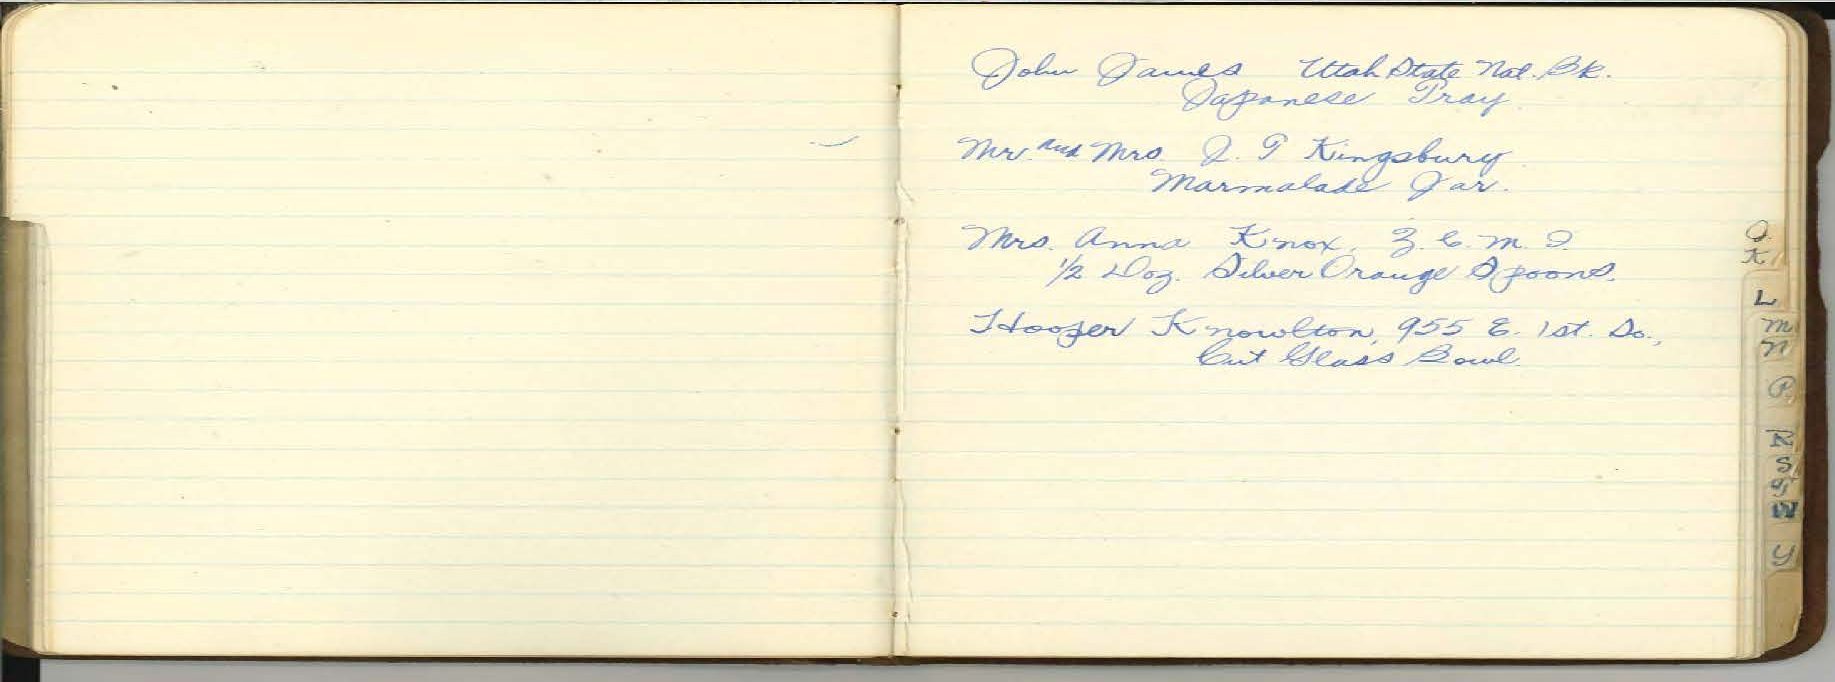 John James Utah State Nat. Bk.
Japanese Tray.
Mr. and Mrs. J. T Kingsbury.
Marmalade Jar.
Mrs. Anna Knox, Z. C. M. I.
1/2 Doz. Silver Orange Spoons.
Hooper Knowlton, 955 E. 1st. So.,
Cut Glass Bowl.
J
K
L
M
N
P
R
S
T
W
Y